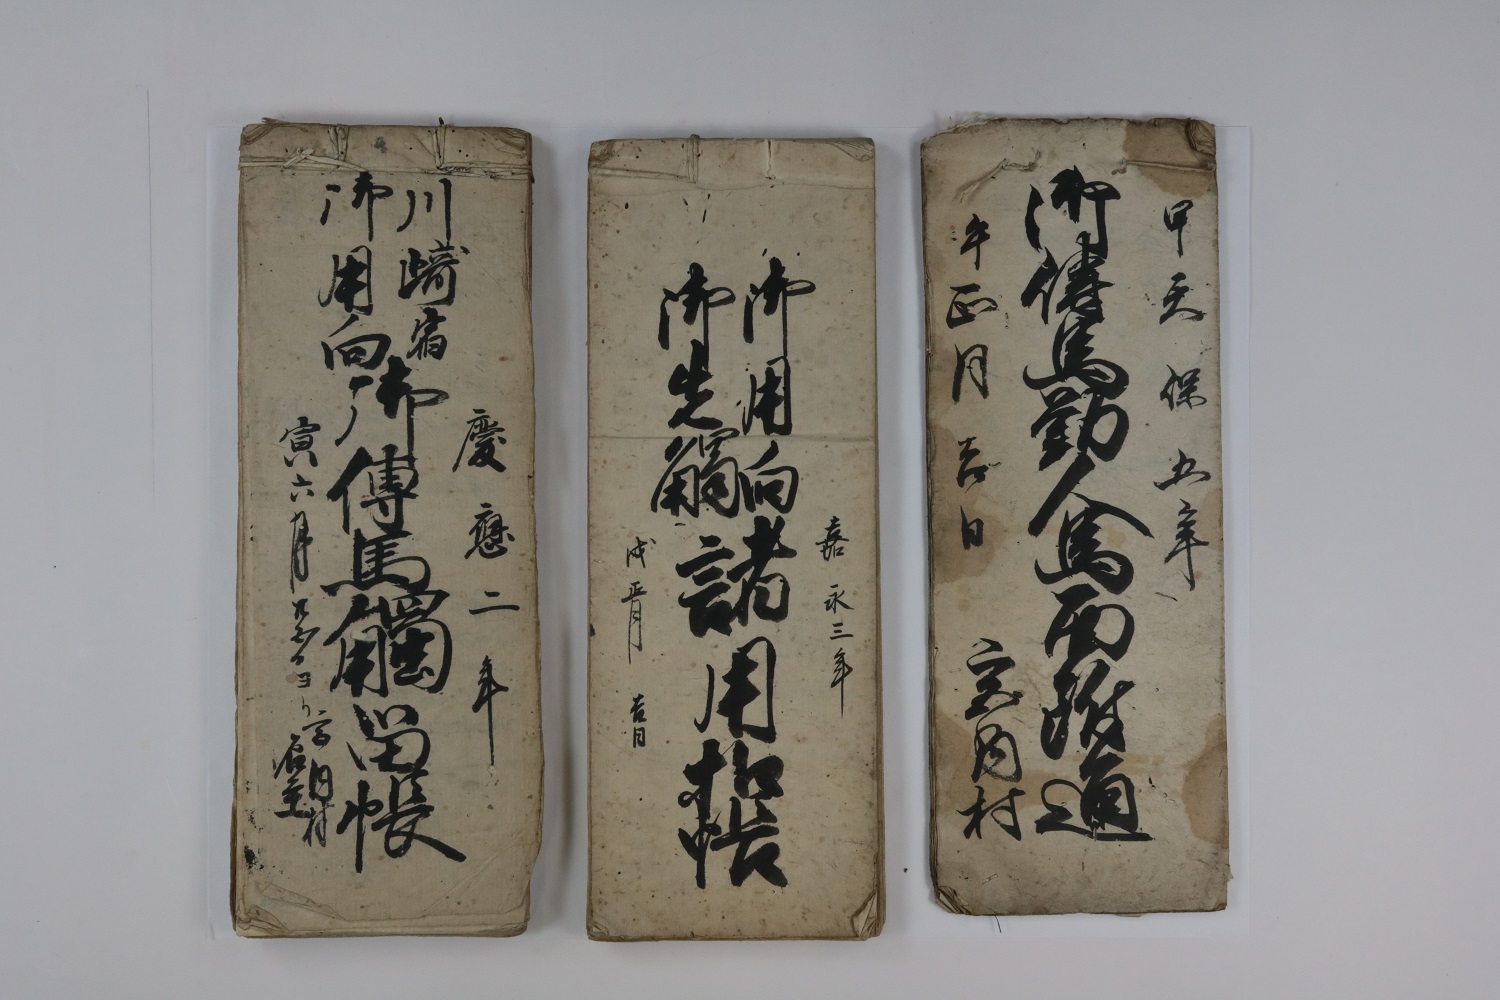 甲天保五年
御傳馬勤人馬両掛通
午正月吉日
宮内村
嘉永三年
御用向
御先觸
諸用扣帳
戌正月
吉日
慶應二年
川崎宿
御用向
御傳馬觸留帳
寅六月
宮内村
名主